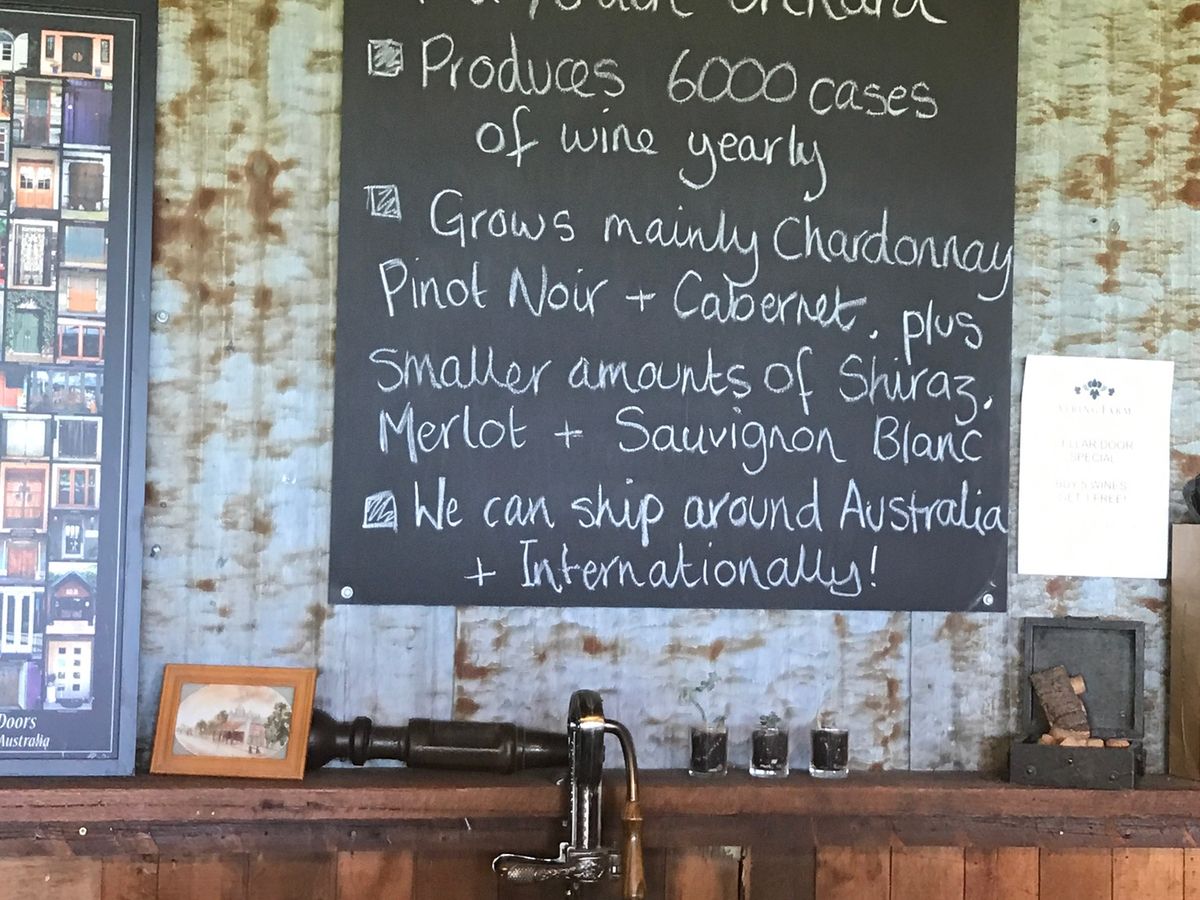 orchard
Produces 6000 cases
of wine yearly
Grows mainly Chardonnay
Pinot Noir + Cabernet, plus
Smaller amounts of Shiraz,
Merlot + Sauvignon Blanc
We can ship around Australia
+ Internationally!
Doors
Australia
YERING FARM
CELLAR DOOR
SPECIAL
BUY 5 WINES
GET 1 FREE!